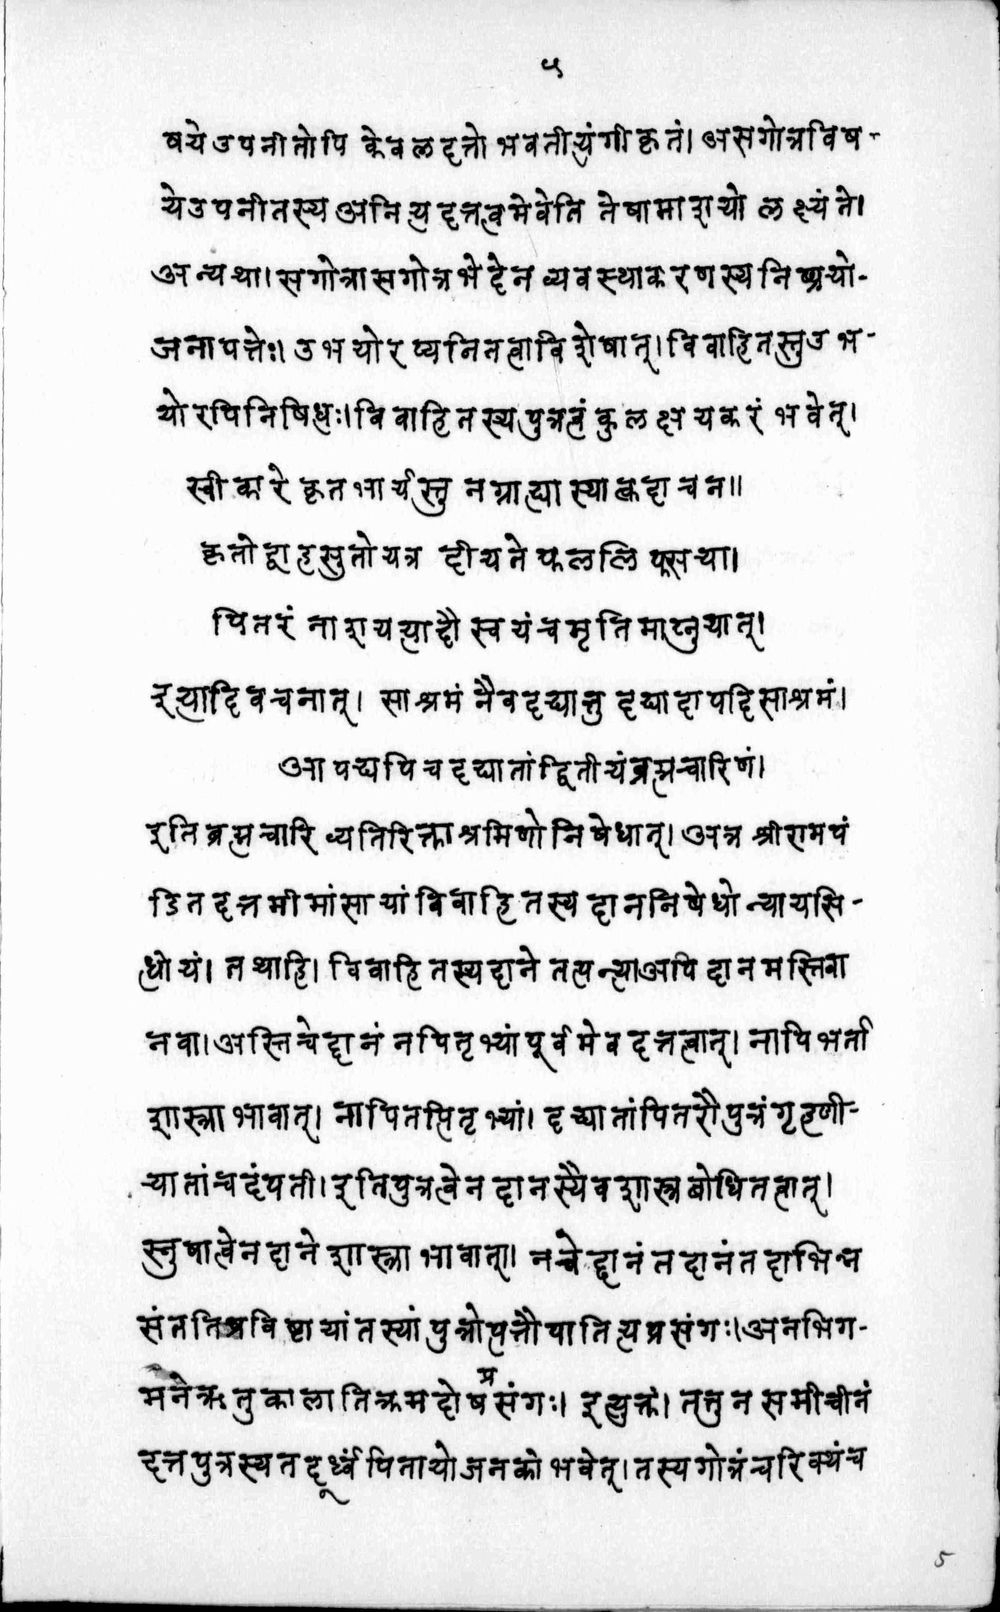 ५
षये उपनीतोपि केवलदत्तो भवतीत्यंगीकृतं। असगोत्रविष-
ये उपनीतस्य अनित्यदत्तत्वमेवेति तेषामाशयो लक्ष्यंते।
अन्यथा। सगोत्रासगोत्रभेदेन व्यवस्थाकरणस्य निष्प्रयो-
जनापत्तेः। उभयोरप्यनितत्वाविशेषात्। विवाहितस्तु उभ-
योरपि निषिधः। विवाहितस्य पुत्रत्वं कुलक्षयकरं भवेत्।
स्वीकारे कृतभार्यस्तु न ग्राह्या स्यात्कदाचन॥
कृतोद्वाहसुतो यत्र दीयते फललिप्सया।
पितरं नाशयत्यादौ स्वयं च मृतिमाप्नुयात्।
इत्यादिवचनात्। साश्रमं नैव दद्यात्तु दद्यादापदि साश्रमं।
आपद्यपि च दद्यातां द्वितीयं ब्रह्मचारिणं।
इति ब्रह्मचारिव्यतिरिक्ताश्रमिणो निषेधात्। अत्र श्रीरामपं
डितदत्तमीमांसायां विवाहितस्य दाननिषेधो न्यायसि-
धोयं। तथाहि। विवाहितस्य दाने तत्पत्न्या अपि दानमस्ति वा
नवा। अस्ति चेद्दानं न पितृभ्यां पूर्वमेव दत्तत्वात्। नापि भर्ता
शास्त्राभावात्। नापि तत्पितृभ्यां। दद्यातां पितरौ पुत्रं गृह्णी-
यातां च दंपती। इति पुत्रत्वेन दानस्यैव शास्त्रबोधितत्वात्।
स्नुषात्वेन दाने शास्त्राभावात्। न चेद्दानं तदानं तदाभिन्न
संततिप्रविष्टायां तस्यां पुत्रोत्पत्तौ पातित्यप्रसंगः। अनभिग-
मने ऋतुकालातिक्रमदोषप्रसंगः। इत्युक्तं। तत्तु न समीचीनं
दत्तपुत्रस्य तदूर्ध्वं पिता यो जनको भवेत्। तस्य गोत्रं च रिक्थं च
5